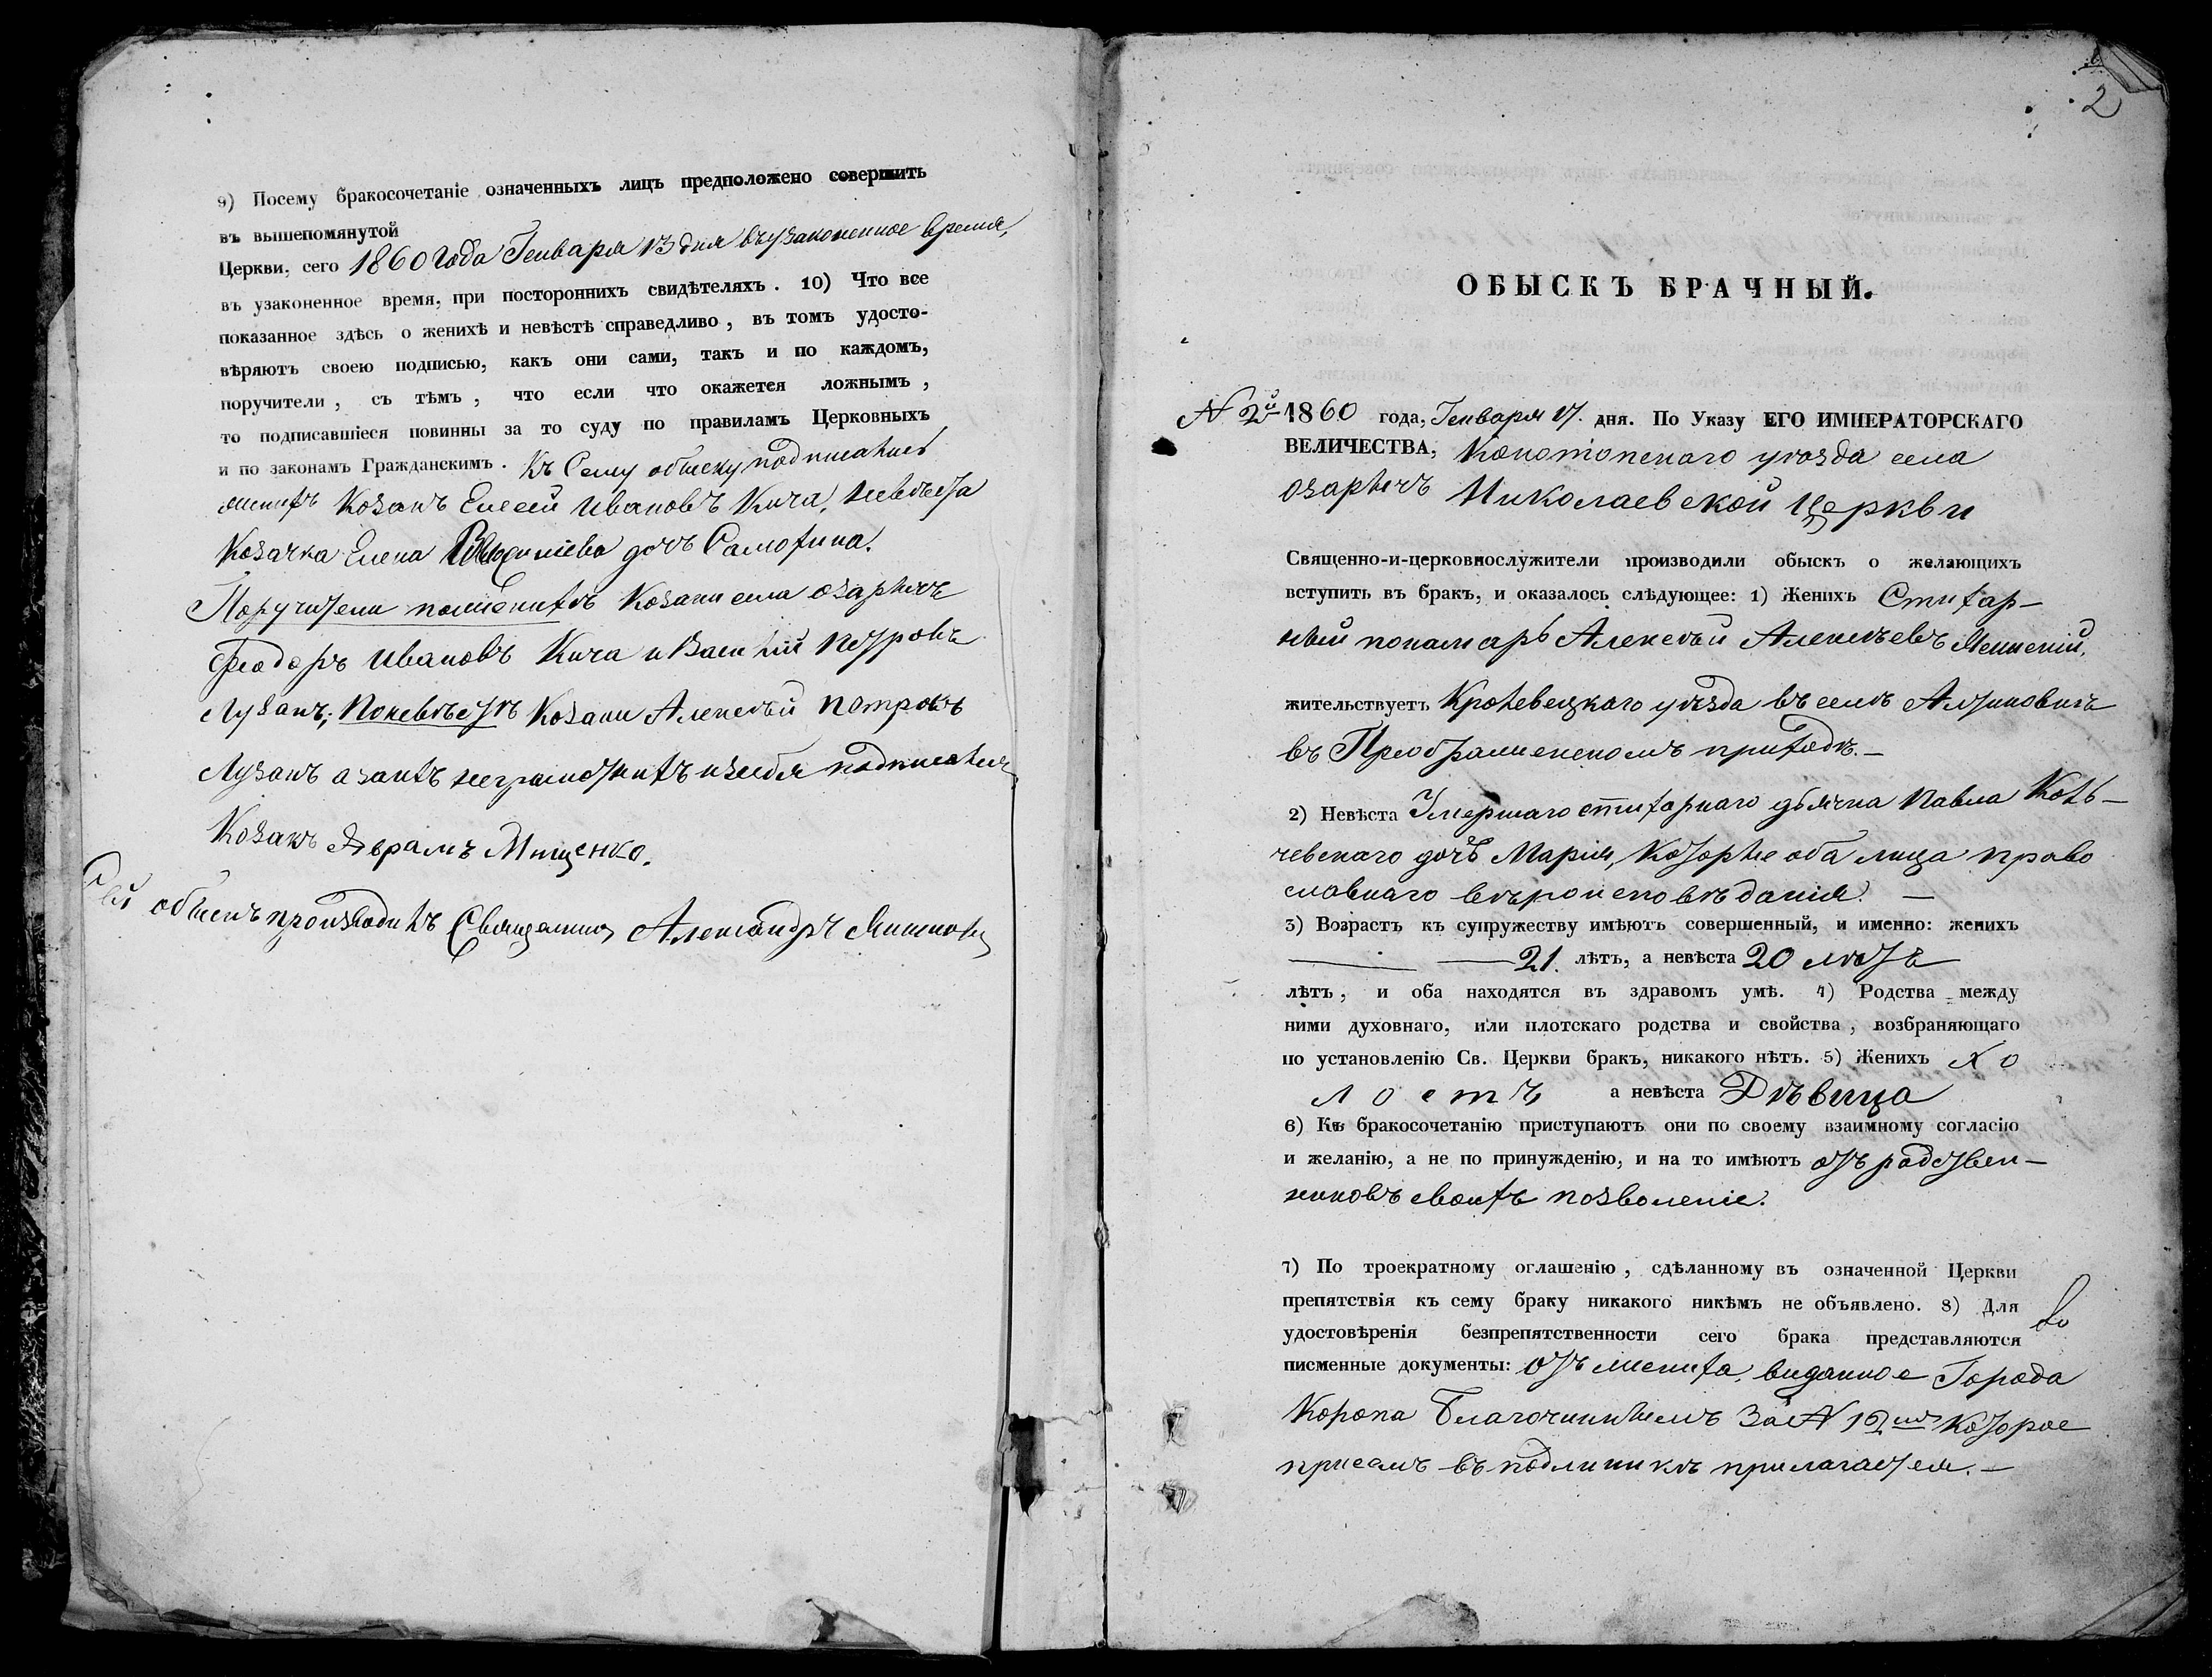 9) Посему бракосочетаніе означенныхъ лицъ предположено совершить
въ вышепомянутой
Церкви, сего 1860 Года Генваря 13 дня въ узаконенное время,
въ узаконенное время, при постороннихъ свидѣтеляхъ. 10) Что все
показанное здѣсь о женихѣ и невѣстѣ справедливо, въ томъ удосто-
вѣряютъ своею подписью, какъ они сами, такъ и по каждомъ,
поручители, съ тѣмъ, что если что окажется ложнымъ,
то подписавшіеся повинны за то суду по правиламъ Церковныхъ
и по законамъ Гражданскимъ. Къ Сему обыску подписались
женихъ Козакъ Елесей Ивановъ Кича, невѣста
Козачка Елена дочь Самохина.
Поручители по женихѣ Козаки села озаричъ
Феодоръ Ивановъ Кича и Василій Петровъ
Лузанъ; По невѣстѣ Козаки Алексѣй Петровъ
Лузанъ а за ихъ неграмотнихъ и за себя подписался
Козакъ Аврамъ Мищенко.
Сей обыскъ производилъ Священникъ Александръ
2
ОБЫСКЪ БРАЧНЫЙ.
N 2й 1860 года, Генваря 17. дня. По Указу ЕГО ИМПЕРАТОРСКАГО
ВЕЛИЧЕСТВА, Конотопскаго уѣзда села
озаричъ Николаевской Церкви
Священно-и-церковнослужители производили обыскъ о желающихъ
вступить въ бракъ, и оказалось слѣдующее: 1) Женихъ Стихар-
ный понамарь Алексѣй Алексѣевъ
жительствуетъ Кролевецкаго уѣзда въ селѣ Алтиновкѣ
въ Преображенскомъ приходѣ. —
2) Невѣста Умершаго стихарнаго дьячка Павла Коль-
чевскаго дочь Марія, которые оба лица право
славнаго вѣроисповѣданія. —
3) Возрастъ къ супружеству имѣютъ совершенный, и именно: женихъ
21. лѣтъ, а невѣста 20 лѣтъ
лѣтъ, и оба находятся въ здравомъ умѣ. 4) Родства между
ними духовнаго, или плотскаго родства и свойства, возбраняющаго
по установленію Св. Церкви бракъ, никакого нѣтъ. 5) Женихъ хо
лостъ а невѣста Дѣвица
6) Къ бракосочетанію приступаютъ они по своему взаимному согласію
и желанію, а не по принужденію, и на то имѣютъ отъ родствен-
никовъ своихъ позволеніе.
7) По троекратному оглашенію, сдѣланному въ означенной Церкви
препятствія къ сему браку никакого никѣмъ не объявлено. 8) Для
удостовѣренія безпрепятственности сего брака представляются
писменные документы: отъ жениха, виданное Города
Коропа Благочиннымъ За N 12мъ которое
при семъ въ подлиникѣ прилагается. —